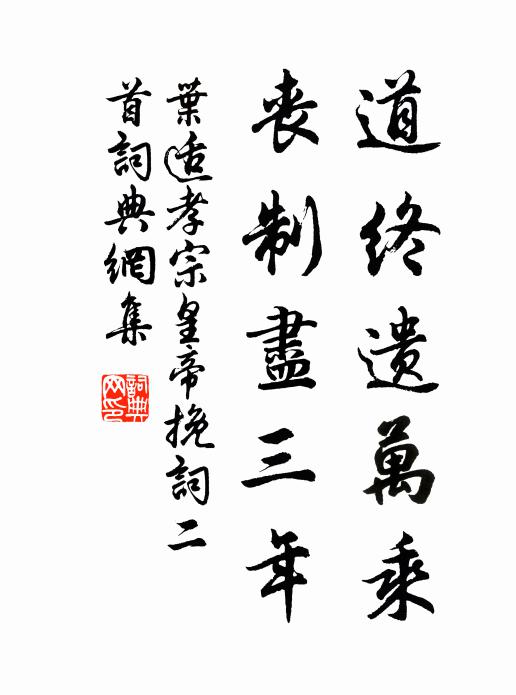 道終遺萬乘
喪制盡三年
葉适孝宗皇帝挽詞二
首詞典網集
詞典网印